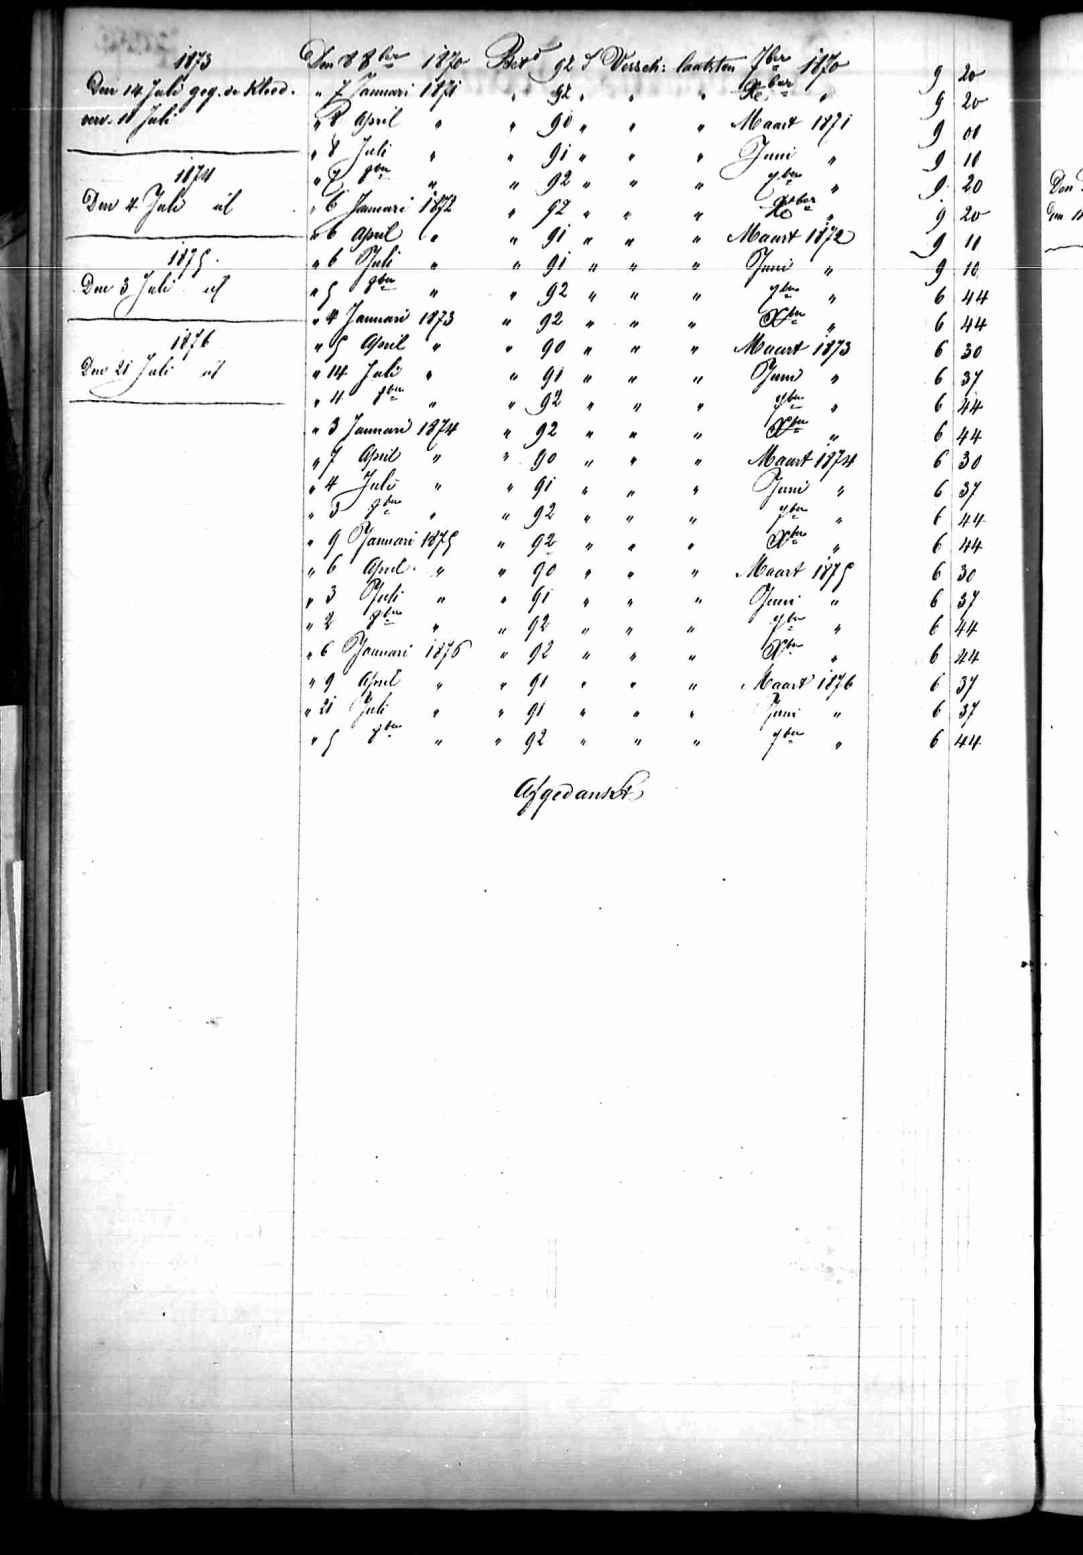 1873
Den 14 Juli geg. de Kleed.
verv. 11 Juli
1874
Den 4 Juli id
1875.
Den 3 Juli id
1876
Den 21 Juli id
Den 8 8ber 1870 Betd 92 d Versch: laatsten 7ber 1870 9 20
" 7 Januari 1871 " 92 " " " Xber " 9 20
" 8 April " " 90 " " " Maart 1871 9 00
" 8 Juli " " 91 " " " Juni " 9 10
" 7 8ber " " 92 " " " 7ber " 9 20
" 6 Januari 1872 " 92 " " " Xber " 9 20
" 6 April " " 91 " " " Maart 1872 9 10
" 6 Juli " " 91 " " " Juni " 9 10
" 5 8ber " " 92 " " " 7ber " 6 44
" 4 Januari 1873 " 92 " " " Xber " 6 44
" 5 April " " 90 " " " Maart 1873 6 30
" 14 Juli " " 91 " " " Juni " 6 37
" 11 8ber " " 92 " " " 7ber " 6 44
" 3 Januari 1874 " 92 " " " Xber " 6 44
" 7 April " " 90 " " " Maart 1874 6 30
" 4 Juli " " 91 " " " Juni " 6 37
" 3 8ber " " 92 " " " 7ber " 6 44
" 9 Januari 1875 " 92 " " " Xber " 6 44
" 6 April " " 90 " " " Maart 1875 6 30
" 3 Juli " " 91 " " " Juni " 6 37
" 2 8ber " " 92 " " " 7ber " 6 44
" 6 Januari 1876 " 92 " " " Xber " 6 44
" 9 April " " 91 " " " Maart 1876 6 37
" 21 Juli " " 91 " " " Juni " 6 37
" 5 8ber " " 92 " " " 7ber " 6 44
Afgedankt